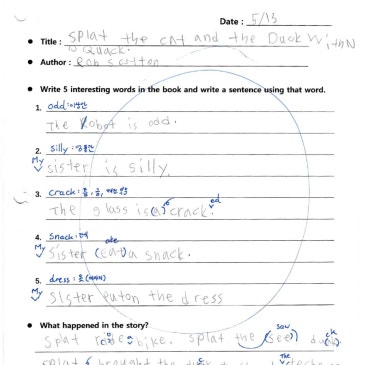 Date : 5/13
Title : Splat the cat and the Duck With N
o Quack.
Author : Rob Scotton
Write 5 interesting words in the book and write a sentence using that word.
1. odd : 이상한
The Robot is odd.
2. Silly :
My sister is silly.
3. Crack : 틈, 금,
The glass is (a) crack. ed
4. Snack : 간식
My Sister (eat) ate a snack.
5. dress : 옷
My Sister puton the dress
What happened in the story?
Splat bike. splat the (see) saw duck
splat brought the The